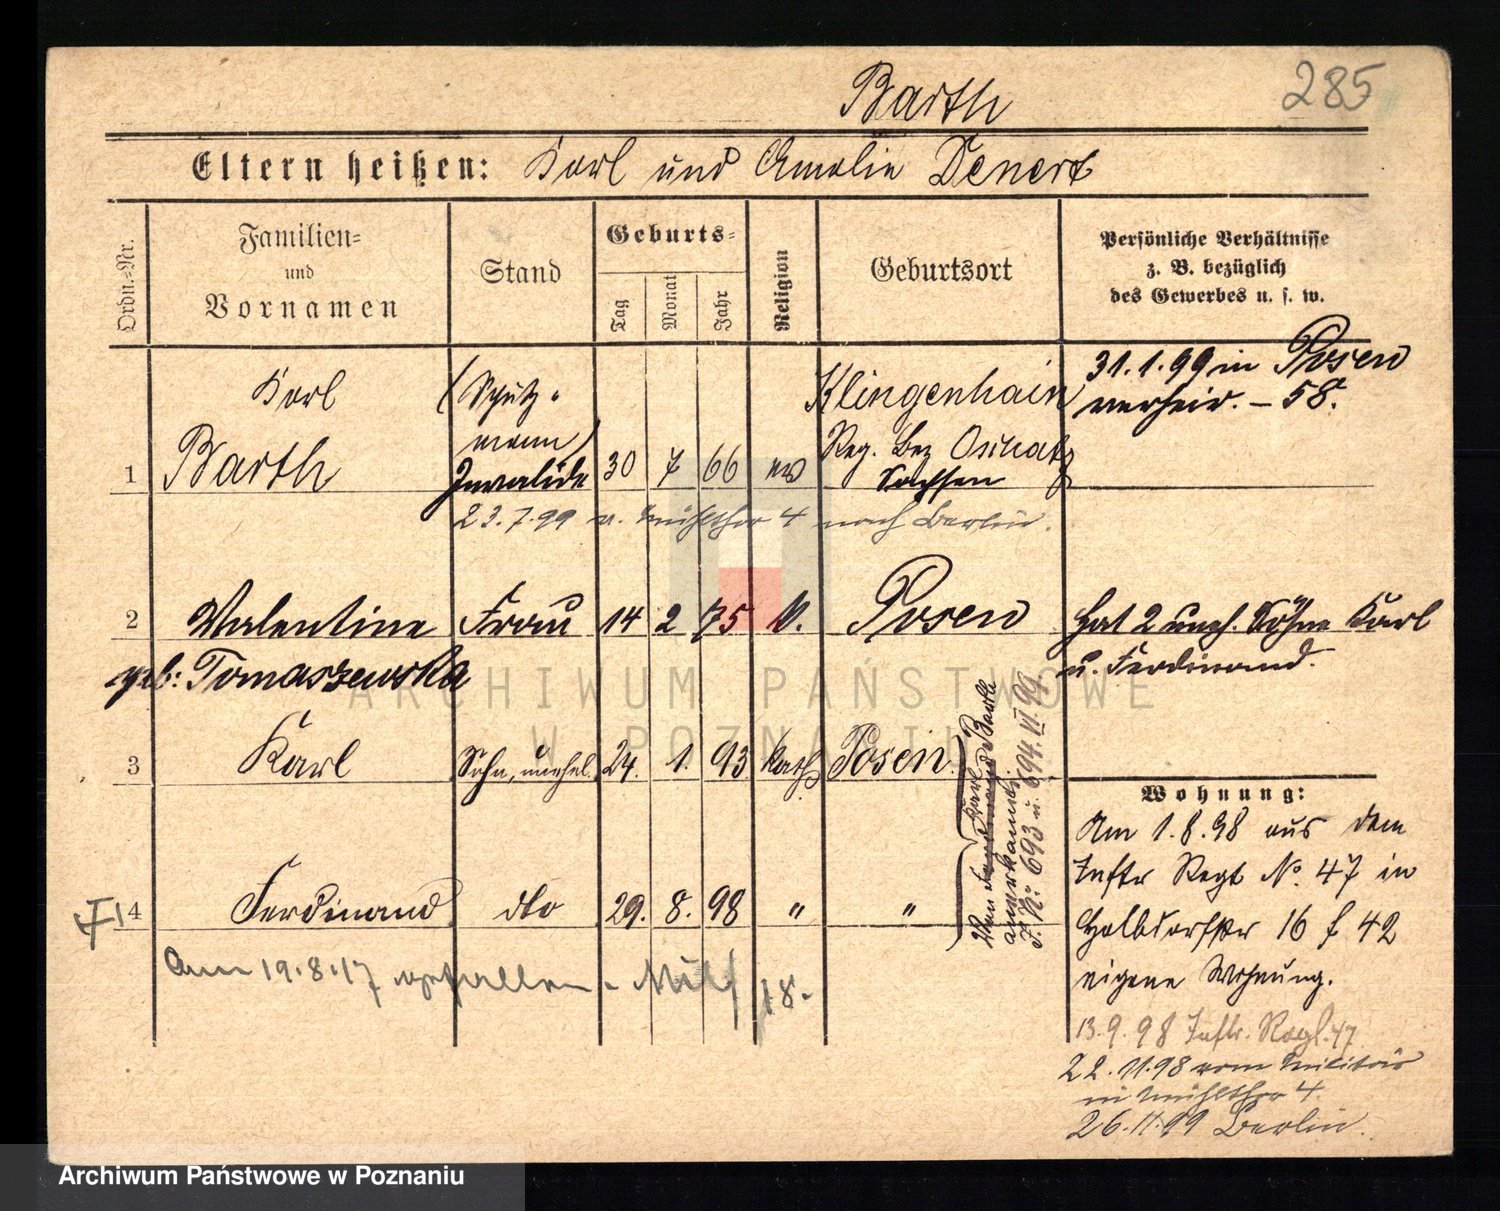 Barth
285
Eltern heißen: Karl und Amalie Denert
Ordn.-Nr.
Familien-
und
Vornamen
Stand
Geburts-
Tag
Monat
Jahr
Religion
Geburtsort
Persönliche Verhältnisse
z. B. bezüglich
des Gewerbes u. s. w.
Karl
Barth
(Schutz-
mann)
Invalide
1 30 7 66 ev
Klingenhain
Reg. Bez Oschatz
Sachsen
31.1.99 in Posen
verheir. – 58.
23.7.99 v. Mühlthor 4 nach Berlin.
2 Valentine Frau 14 2 75 k. Posen
geb: Tomaszewska
Hat 2 uneh. Söhne Karl
u. Ferdinand.
3 Karl Sohn, unehel. 24. 1. 93 kath. Posen
4 Ferdinand dto 29. 8. 98 " "
Von Karl Barth
anerkannt
J.N: 693 u. 694. VI 99
Am 19.8.17 gefallen - Mil 18.
Wohnung:
Am 1.8.98 aus dem
Inftr Regt No. 47 in
Halbdorfstr 16 f 42
eigene Wohnung.
13.9.98 Inftr. Regt. 47
22.11.98 vom Militär
in Mühlthor 4.
26.11.99 Berlin.
ARCHIWUM PAŃSTWOWE
W POZNANIU
Archiwum Państwowe w Poznaniu